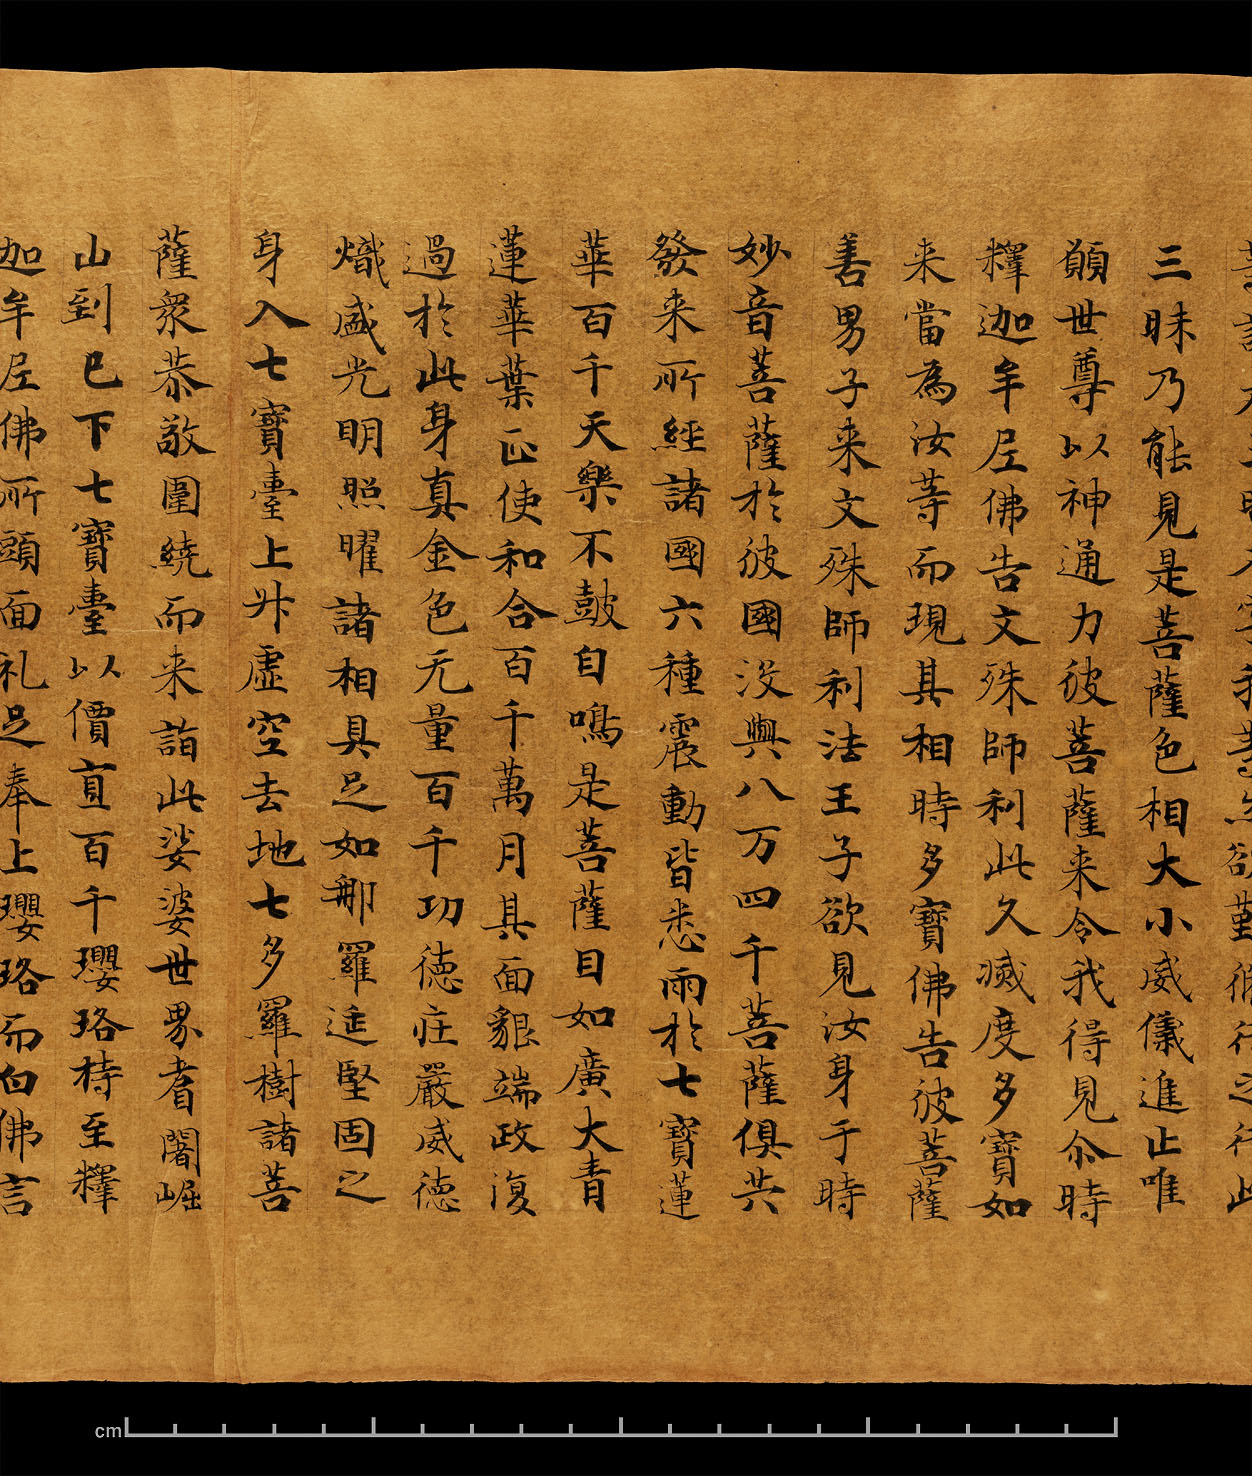 我等欲勤行之行此
三昧乃能見是菩薩色相大小威儀進止唯
願世尊以神通力彼菩薩来令我得見尒時
釋迦牟尼佛告文殊師利此久滅度多寶如
来當為汝等而現其相時多寶佛告彼菩薩
善男子来文殊師利法王子欲見汝身于時
妙音菩薩於彼國没與八万四千菩薩俱共
發来所經諸國六種震動皆悉雨於七寶蓮
華百千天樂不鼓自鳴是菩薩目如廣大青
蓮華葉正使和合百千萬月其面貌端政復
過於此身真金色无量百千功德莊嚴威德
熾盛光明照曜諸相具足如那羅延堅固之
身入七寶臺上昇虛空去地七多羅樹諸菩
薩衆恭敬圍繞而来詣此娑婆世界耆闍崛
山到已下七寶臺以價直百千瓔珞持至釋
迦牟尼佛所頭面礼足奉上瓔珞而白佛言
cm